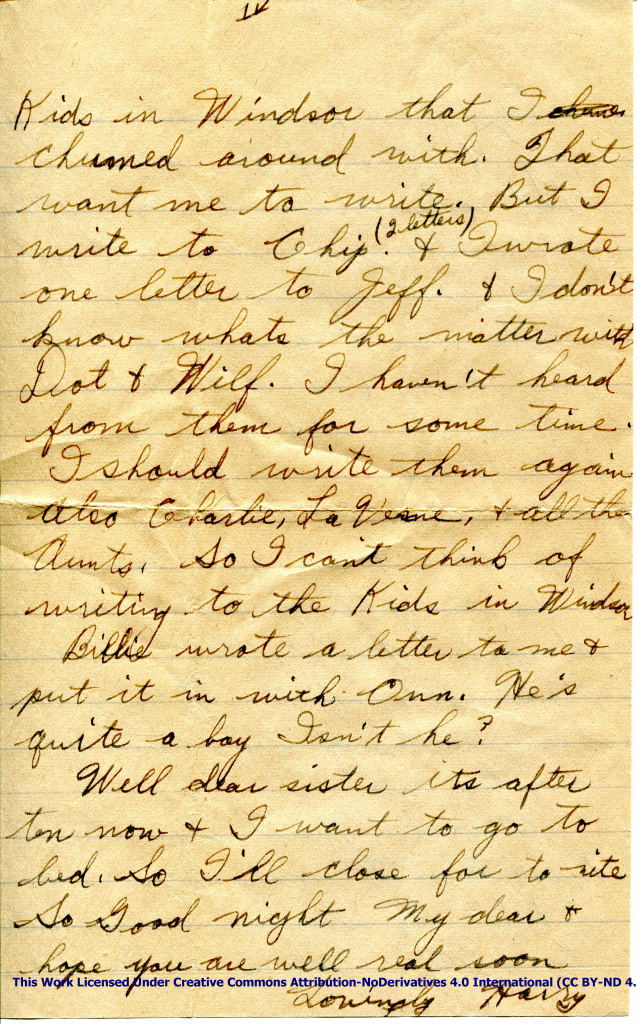 IV
Kids in Windsor that I chumed
chumed around with. That
want me to write. But I
write to Chip. (2 letters) & I wrote
one letter to Jeff. & I don't
know whats the matter with
Dot & Wilf. I haven't heard
from them for some time.
I should write them again
also Charlie, La Verne, & all the
Aunts. So I can't think of
writing to the Kids in Windsor
Billie wrote a letter to me &
put it in with Onn. He's
quite a boy Isn't he?
Well dear sister its after
ten now & I want to go to
bed. So I'll close for to-nite
So Good night My dear &
hope you are well real soon
This Work Licensed Under Creative Commons Attribution-NoDerivatives 4.0 International (CC BY-ND 4.
Lovingly Harry